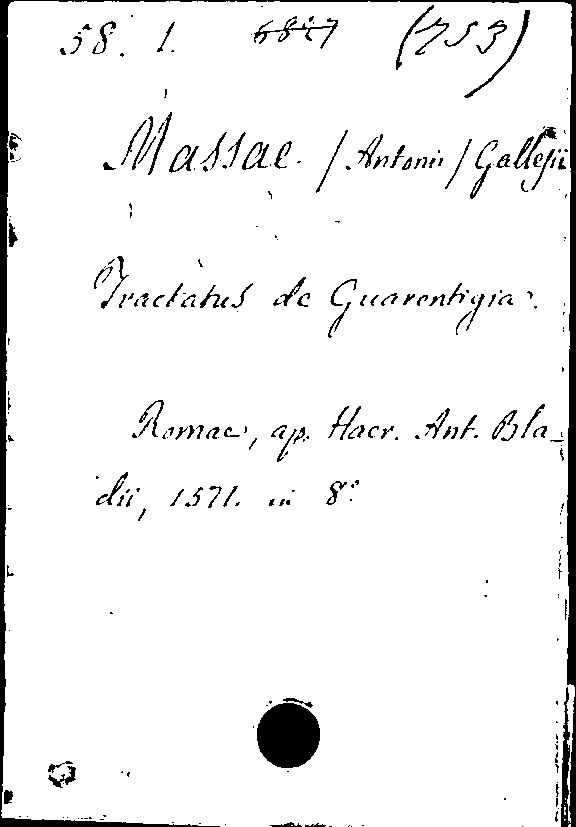 58. 1. 6827 (753)
Massae. / Antonii / Gallesii
Tractatus de Guarentigia.
Romae, ap. Haer. Ant. Bla-
dii, 1571. in 8°